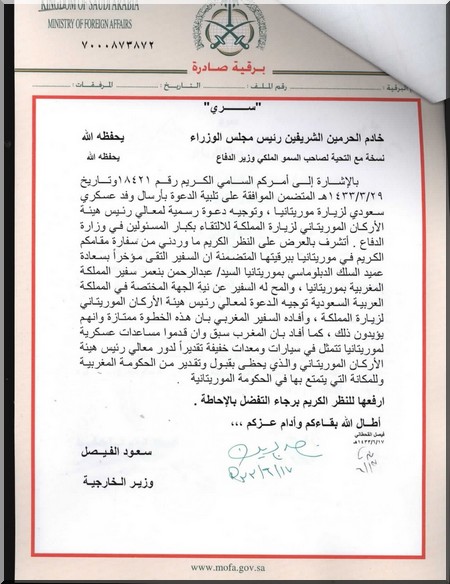 KINGDOM OF SAUDI ARABIA
MINISTRY OF FOREIGN AFFAIRS
٧٠٠٠٨٧٣٨٧٢
برقية صادرة
البرقية :
رقم الملف :
التاريخ :
المرفقات :
"ســـري"
خادم الحرمين الشريفين رئيس مجلس الوزراء يحفظه الله
نسخة مع التحية لصاحب السمو الملكي وزير الدفاع يحفظه الله
بالإشارة إلى أمركم السامي الكريم رقم ١٨٤٢١ وتاريخ
١٤٣٣/٣/٢٩هـ المتضمن الموافقة على تلبية الدعوة بأرسال وفد عسكري
سعودي لزيارة موريتانيا ، وتوجيه دعوة رسمية لمعالي رئيس هيئة
الأركان الموريتاني لزيارة المملكة للالتقاء بكبار المسئولين في وزارة
الدفاع . أتشرف بالعرض على النظر الكريم ما وردني من سفارة مقامكم
الكريم في موريتانيا ببرقيتها المتضمنة ان السفير التقى مؤخراً بسعادة
عميد السلك الدبلوماسي بموريتانيا السيد/ عبدالرحمن بنعمر سفير المملكة
المغربية بموريتانيا ، والمح له السفير عن نية الجهة المختصة في المملكة
العربية السعودية توجيه الدعوة لمعالي رئيس هيئة الأركان الموريتاني
لزيارة المملكة ، وأفاده السفير المغربي بان هذه الخطوة ممتازة وانهم
يؤيدون ذلك ، كما أفاد بان المغرب سبق وان قدموا مساعدات عسكرية
لموريتانيا تتمثل في سيارات ومعدات خفيفة تقديراً لدور معالي رئيس هيئة
الأركان الموريتاني والذي يحظى بقبول وتقدير من الحكومة المغربية
وللمكانة التي يتمتع بها في الحكومة الموريتانية .
ارفعها للنظر الكريم برجاء التفضل بالإحاطة .
أطال الله بقاءكم وأدام عزكم ،،،
فيصل القحطاني
١٤٣٣/٦/١٧هـ
سعود الفيصل
وزير الخارجية
www.mofa.gov.sa